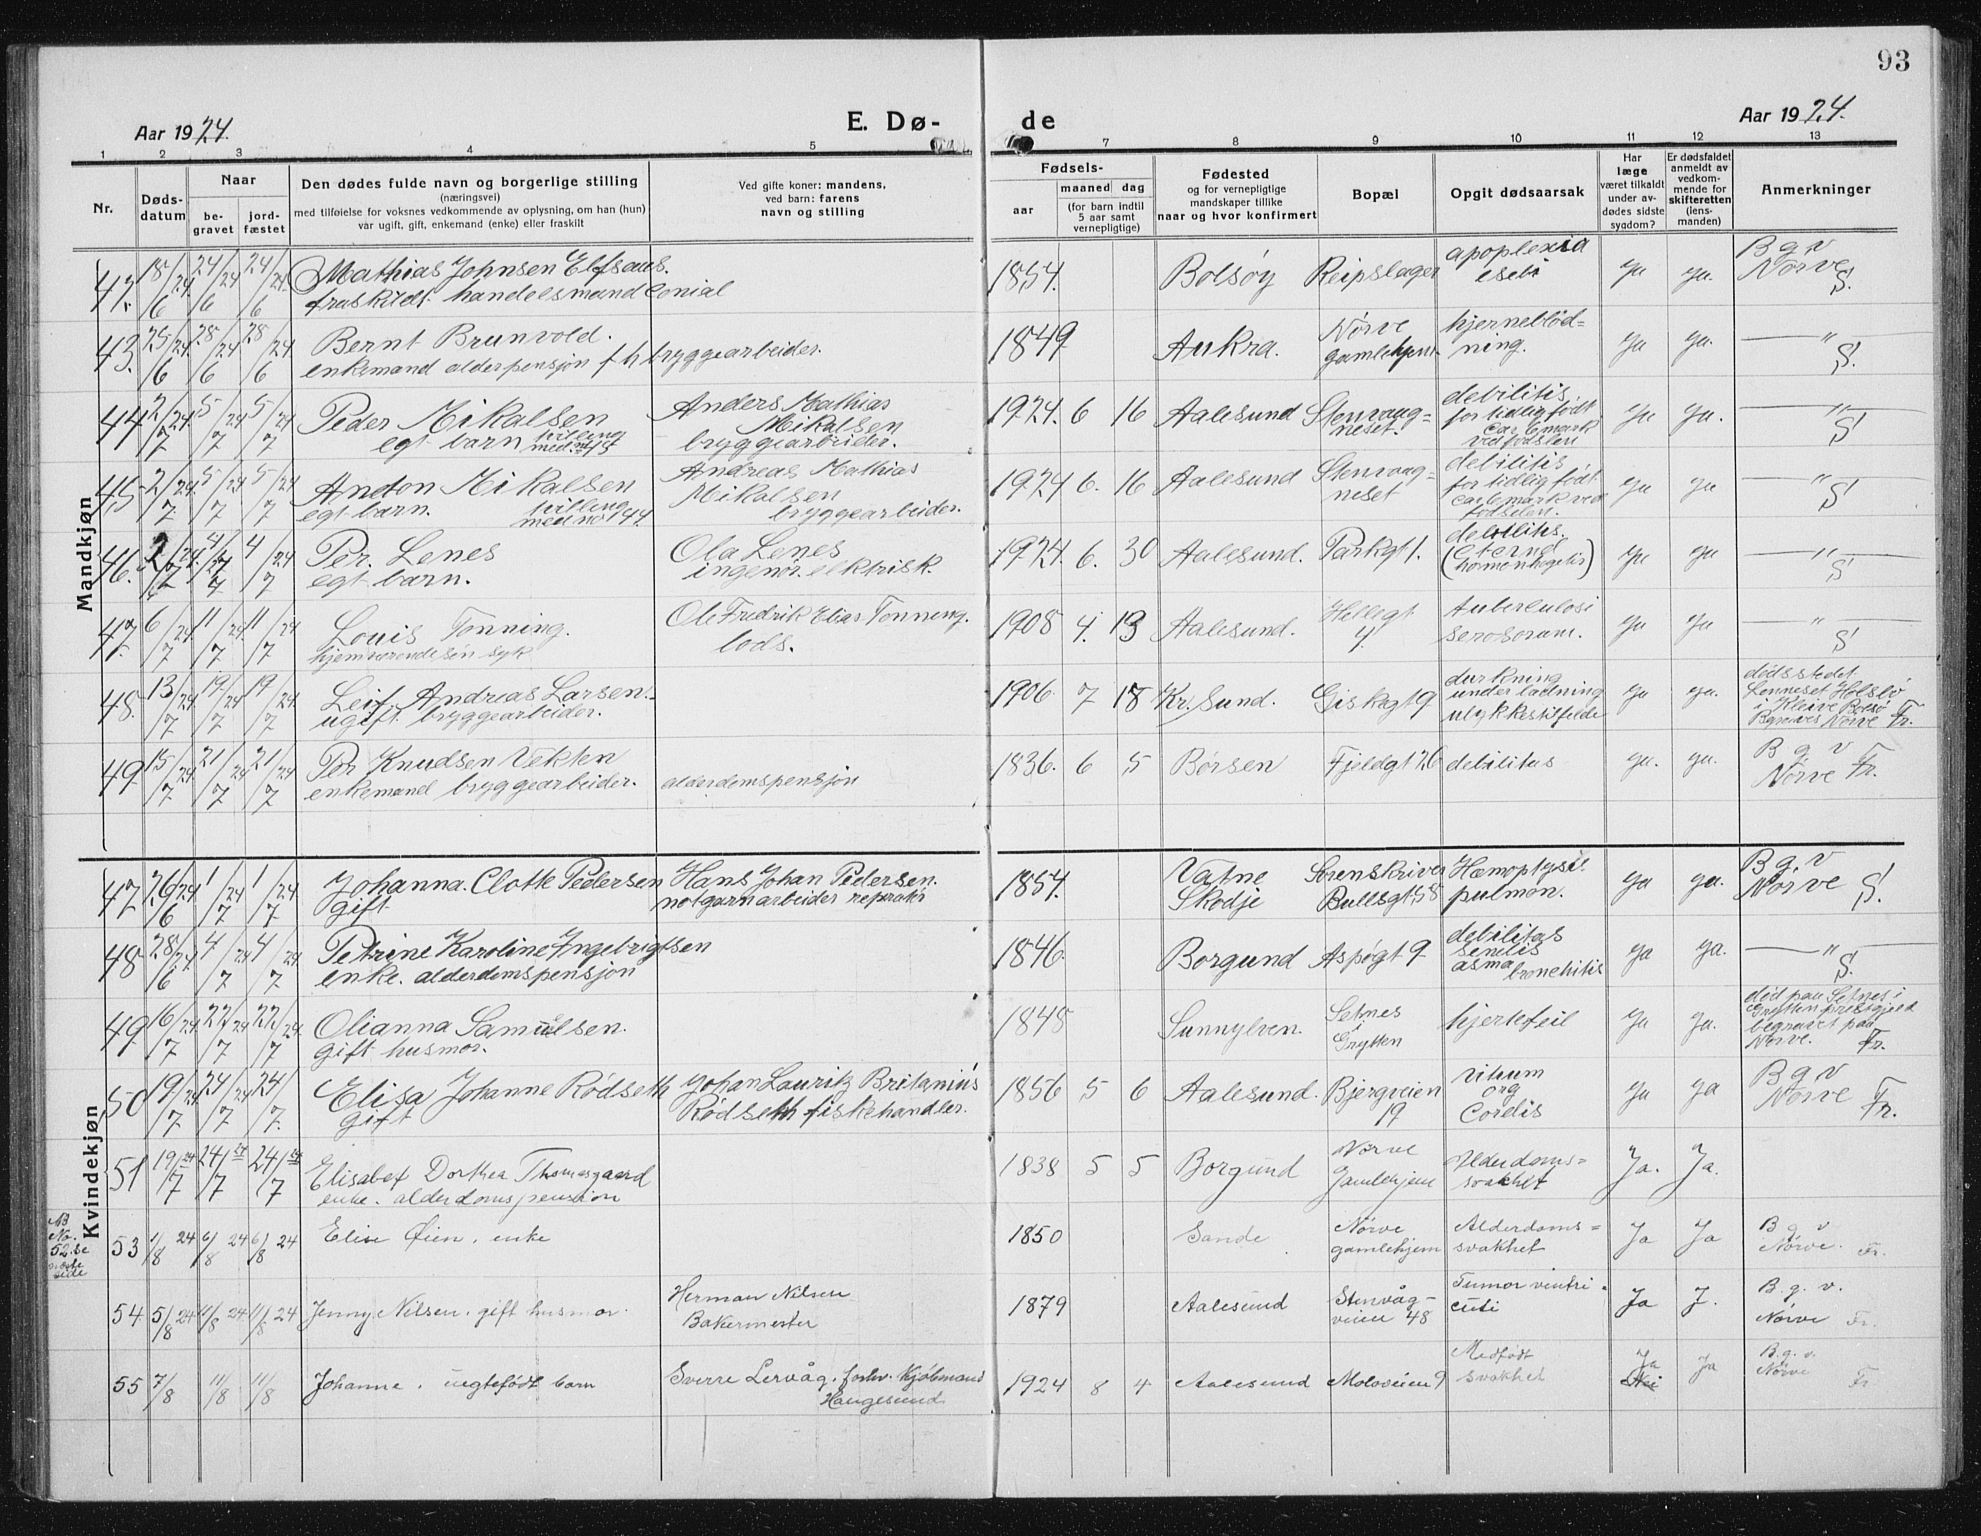 93
Aar 1924.
E. Dø-
de
Aar 1924.
1 2 3 4 5 7 8 9 10 11 12 13
Nr.
Døds-
datum
Naar
be-
gravet
jord-
fæstet
Den dødes fulde navn og borgerlige stilling
(næringsvei)
med tilføielse for voksnes vedkommende av oplysning, om han (hun)
var ugift, gift, enkemand (enke) eller fraskilt
Ved gifte koner: mandens,
ved barn: farens
navn og stilling
Fødsels-
aar
maaned dag
(for barn indtil
5 aar samt
vernepligtige)
Fødested
og for vernepligtige
mandskaper tillike
naar og hvor konfirmert
Bopæl
Opgit dødsaarsak
Har
læge
været tilkaldt
under av-
dødes sidste
sygdom?
Er dødsfaldet
anmeldt av
vedkom-
mende for
skifteretten
(lens-
manden)
Anmerkninger
Mandkjøn
42. 18/6 24. 24/6 24 24/6 24. Mathias Johnsen Elfsaas.
fraskildt. handelsmand Conial
1854. Bolsøy Reipslager apoplexia
ja ja. B g v
Nørve
S.
43. 25/6 24 28/6 24 28/6 24 Bernt Brunvold.
enkemand alderpensjon f h bryggearbeider.
1849 Aukra. Nørve
gamlehjem hjerneblød=
ning. ja ja. — " —
S.
44 2/7 24 5/7 24 5/7 24 Peder Mikalsen
egt barn tvilling
med nr 45
Anders Mathias
Mikalsen
bryggearbeider.
1924. 6 16 Aalesund Stenvaag=
neset. debilitis
for tidlig født
ca 6 mark
ved fødselen
ja ja. — " —
S.
45 2/7 24. 5/7 24 5/7 24 Anton Mikalsen
egt barn. tvilling
med nr 44.
Andreas Mathias
Mikalsen
bryggearbeider.
1924 6. 16 Aalesund Stenvaag=
neset debilitis
for tidlig født
ca 6 mark ved
fødselen.
ja ja — " —
S.
46. 2/7 24. 4/7 24 4/7 24 Per. Lenes
egt barn.
Ola Lenes
ingeniør. elektrisk.
1924. 6. 30 Aalesund. Parkgt 1. debilitis.
ja ja — " —
S.
47. 6/7 24. 11/7 24 11/7 24 Louis Tønning.
hjemværende søn syk
Ole Fredrik Elias Tønning.
lods.
1908 4. 13 Aalesund. Hellegt
4. tuberculosi
serosorum.
ja ja — " —
S
48. 13/7 24. 19/7 24 19/7 24. Leif Andreas Larsen.
ugift. bryggearbeider.
1906 7 18 Kr. Sund. Giskegt 9 durkning
under ladning
ulykkestilfelde
ja ja. dødsstedet
i Kleive Bolsø
Begraves Nørve Fr.
49 15/7 24. 21/7 24 21/7 24 Per Knudsen Vekten
enkemand bryggearbeider. alderdomspensjon
1836. 6 5 Børsen Fjeldgt 26 debilitas
ja. ja. B g v
Nørve Fr.
Kvindekjøn
47 26/6 24 1/7 24 1/7 24 Johanna. Clotte Pedersen
gift
Hans Johan Pedersen.
notgarnarbeider reparatør
1854. Vatne
Skodje Sorenskriver
Bullsgt 58 Hæmoptysis
pulmon.
ja ja. B g. v
Nørve S!
48 28/6 24. 4/7 24 4/7 24 Petrine Karoline Ingebrigtsen
enke. alderdomspensjon
1846. Borgund Aspøgt 9 debilitas
senilis
asma
bronchitis
ja ja. — " —
S.
49 16/7 24 22/7 24 22/7 24 Olianna Samuelsen.
gift husmor.
1848 Sunnylven. Setnes
Grytten hjertefeil
ja ja. død paa Setnes i
Grytten prestgjeld
begravet paa
Nørve. Fr.
50 19/7 24 24/7 24 24/7 Elisa Johanne Rødseth
gift
Johan Lauritz Britanius
Rødseth fiskehandler.
1856 5 6 Aalesund. Bjørgveien
19 vitium
org
Cordis
ja ja B g v
Nørve Fr.
51 19/7 24 24/7 24 24/7 24 Elisabet Dorthea Thomasgaard
enke. alderdomspension
1838 5 5 Borgund Nørve
Gamlehjem Alderdoms=
svakhet Ja. Ja.
NB
No.
52. se
næste
side
53 1/8 24 6/8 24 6/8 24 Elise Øien. enke
1850 Sande Nørve
gamlehjem Alderdoms=
svakhet Ja Ja B. g. v.
Nørve. Fr.
54 5/8 24 11/8 24 11/8 24 Jenny Nilsen. gift husmor.
Herman Nilsen
Bakermester
1879 Aalesund Stenvåg-
veien 48 Tumor ventri-
culi Ja J. B. g. v.
Nørve Fr.
55 7/8 11/8 11/8 Johanne. uegtefødt barn
Sverre Lervåg. forhv. Kjøbmand
Haugesund
1924 8 4 Aalesund Moloveien 9 Medfødt
svakhet Ja
Nei Ja B. g. v.
Nørve Fr.